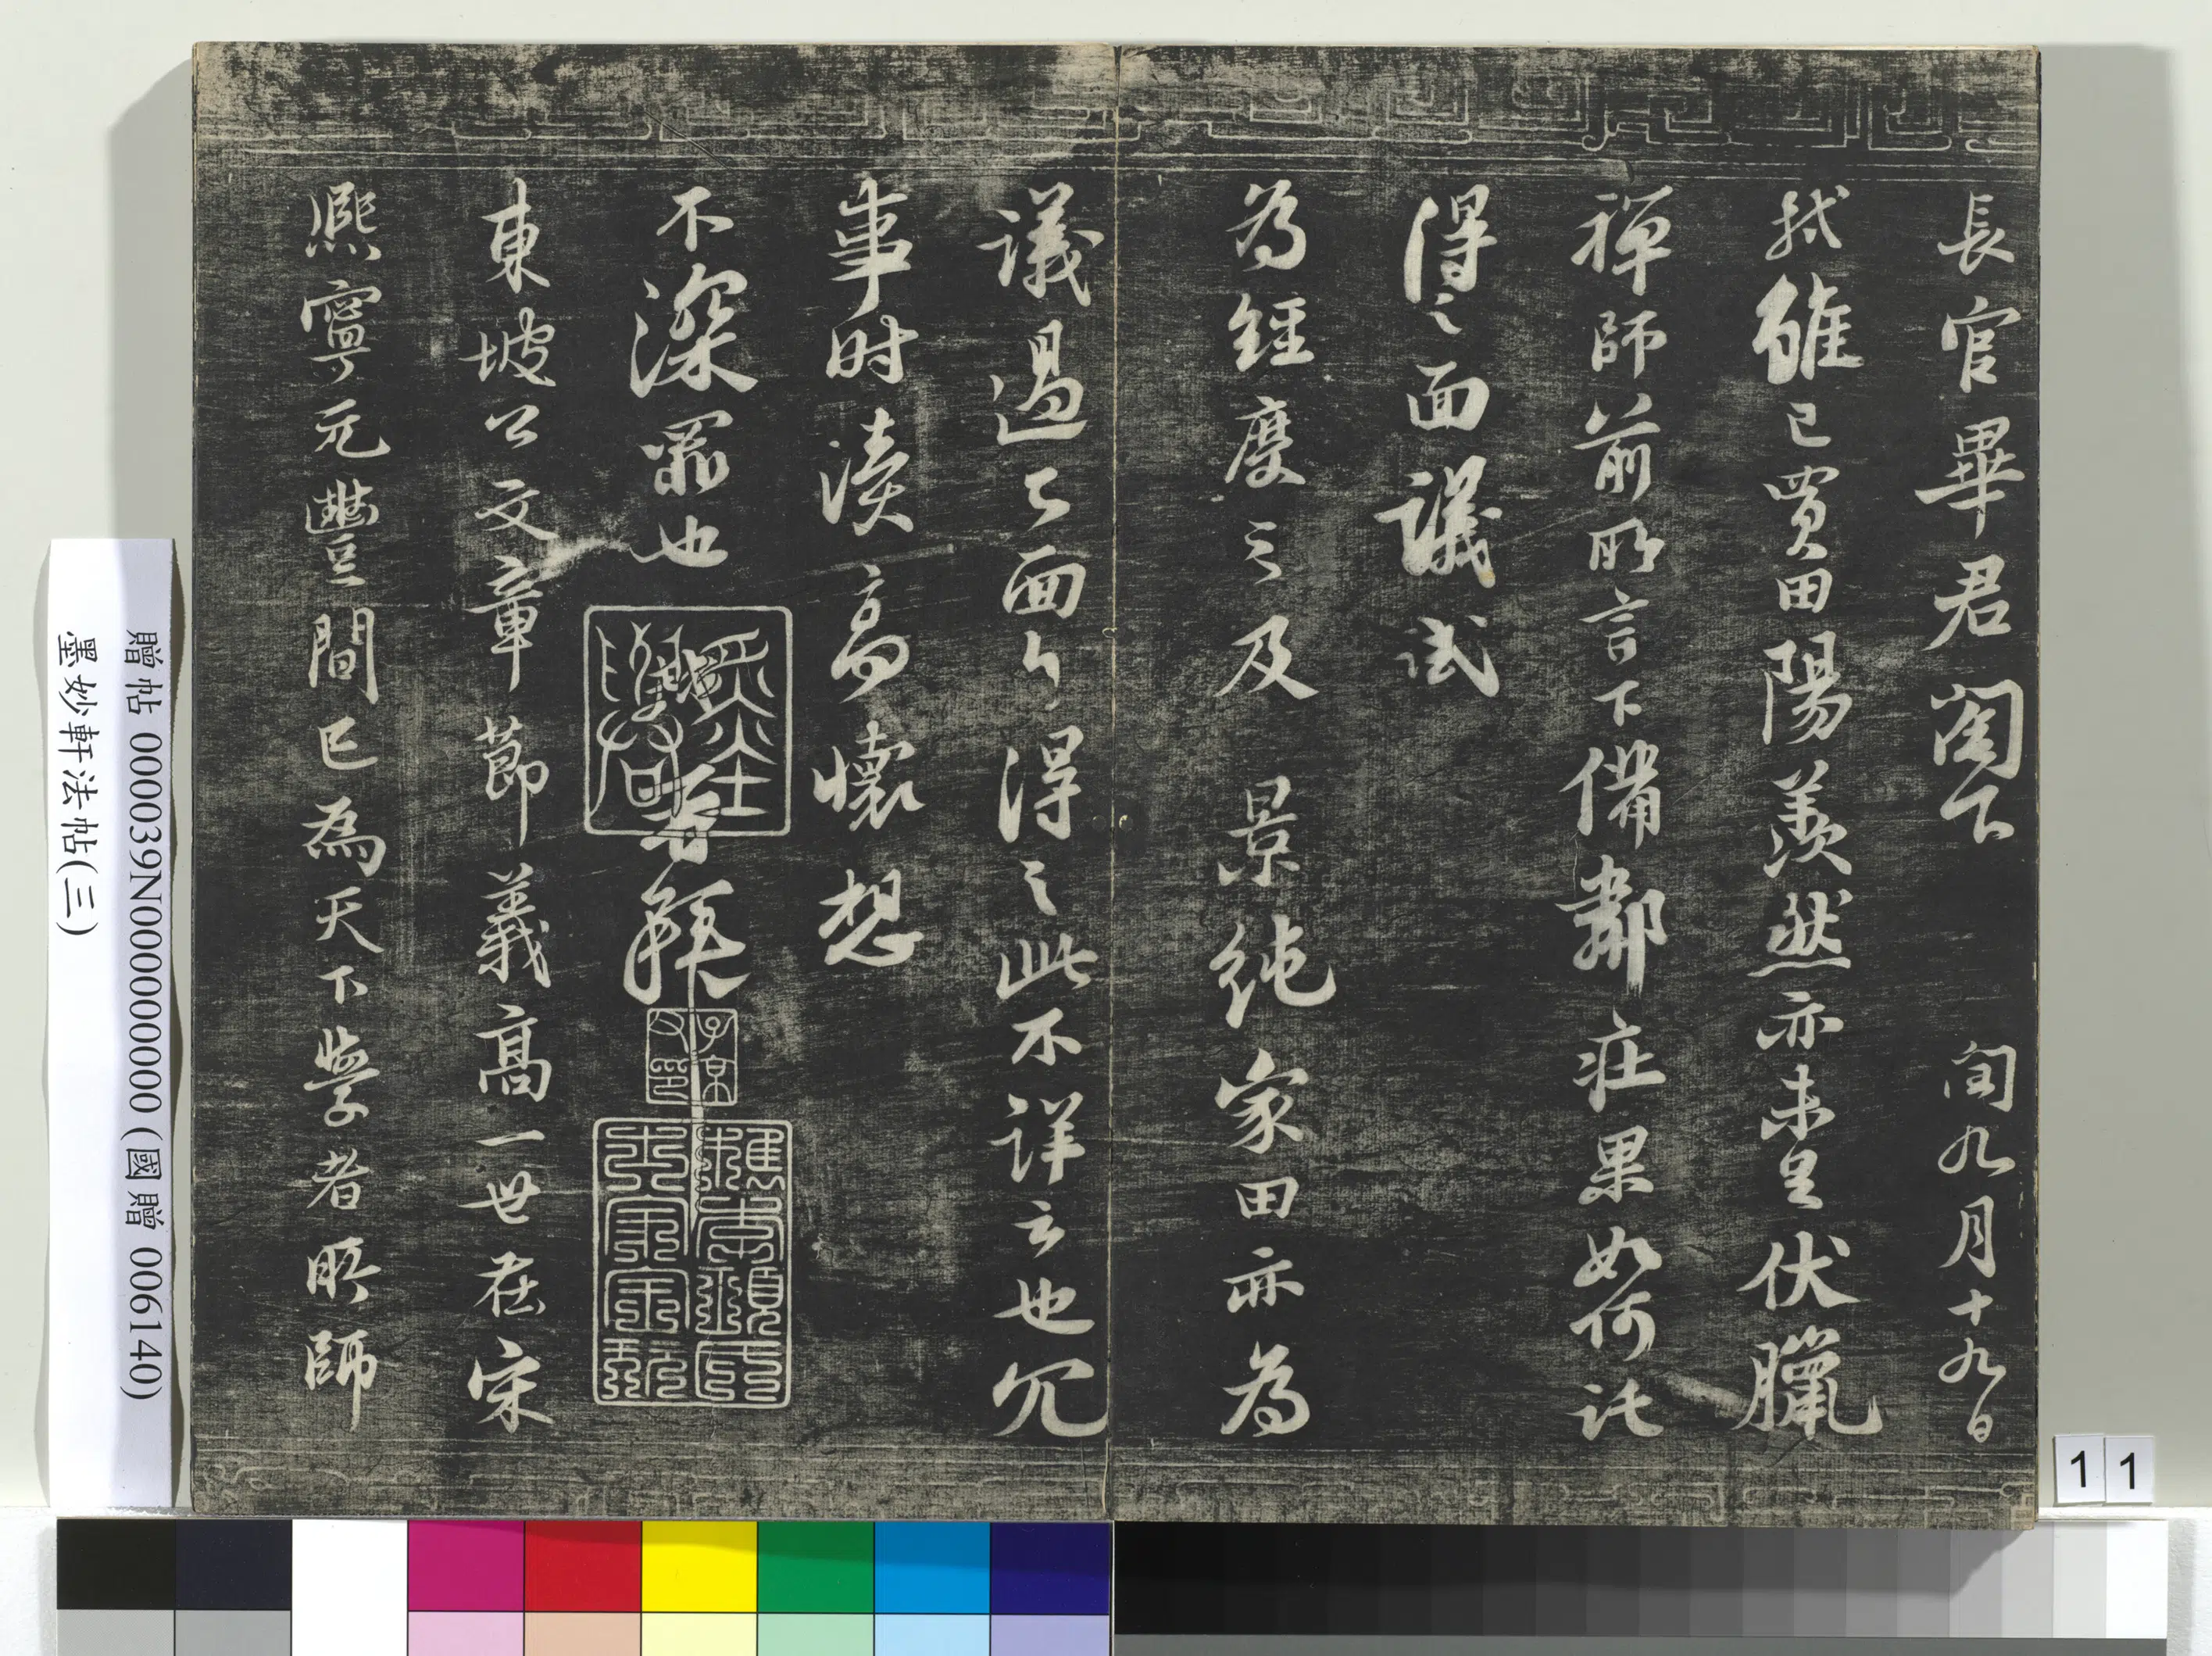 長官畢君閣下 閏九月十九日
軾雖已買田陽羨然亦未足伏臘
禅師前所言下備鄰荘果如何託
得之面議試
為經度之及 景純家田亦為
議過已面白得之此不詳云也冗
事时瀆高懷想
不深罪也 軾再拜
東坡公文章節義高一世在宋
熙寧元豐間已為天下學者所師
贈帖 000039N000000000 (國贈 006140)
墨妙軒法帖(三)
11